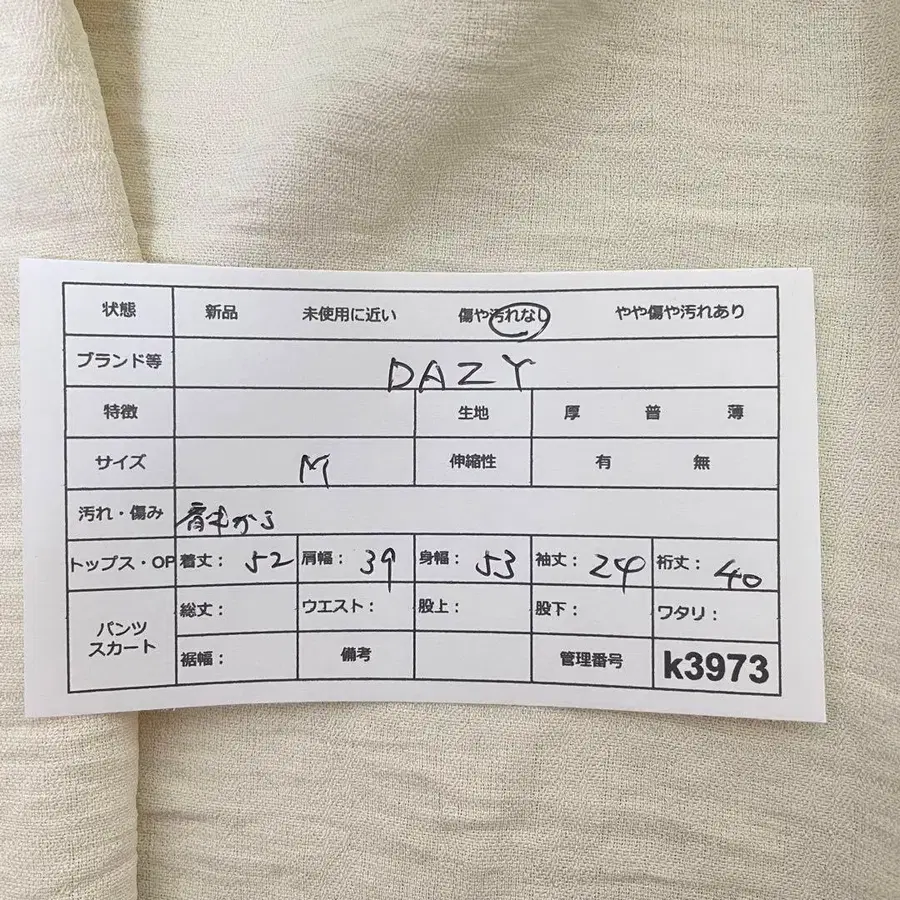 状態 新品 未使用に近い 傷や汚れなし やや傷や汚れあり
ブランド等 DAZY
特徴 生地 厚 普 薄
サイズ M 伸縮性 有 無
汚れ・傷み
トップス・OP 着丈： 52 肩幅： 39 身幅： 53 袖丈： 24 裄丈： 40
パンツ スカート 総丈： ウエスト： 股上： 股下： ワタリ：
裾幅： 備考 管理番号 k3973